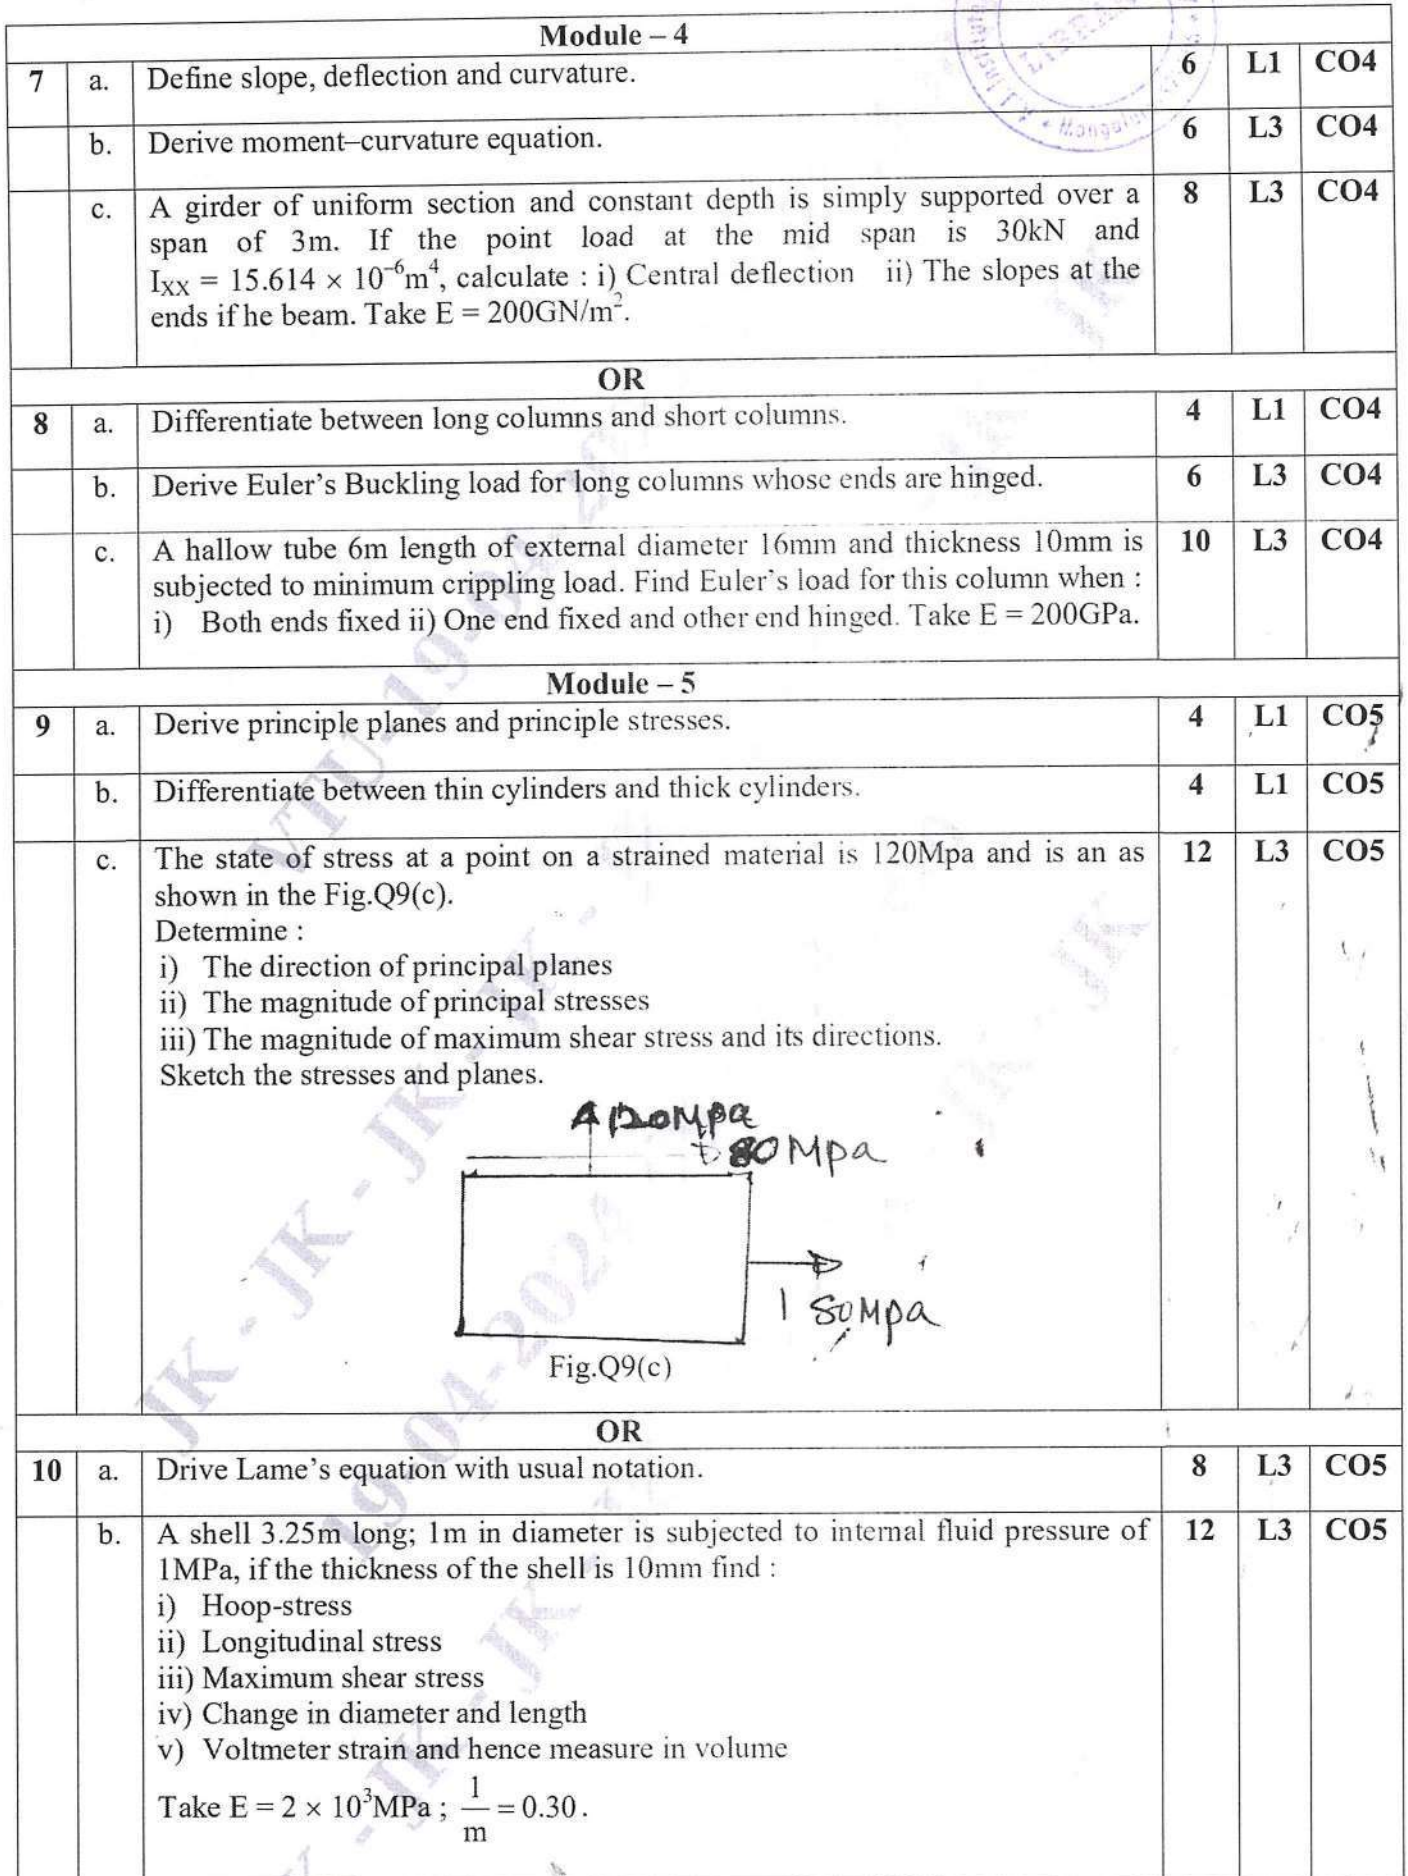 Module – 4
7 a. Define slope, deflection and curvature. 6 L1 CO4
b. Derive moment–curvature equation. 6 L3 CO4
c. A girder of uniform section and constant depth is simply supported over a 8 L3 CO4
span of 3m. If the point load at the mid span is 30kN and
I_XX = 15.614 × 10⁻⁶m⁴, calculate : i) Central deflection ii) The slopes at the
ends if he beam. Take E = 200GN/m².
OR
8 a. Differentiate between long columns and short columns. 4 L1 CO4
b. Derive Euler's Buckling load for long columns whose ends are hinged. 6 L3 CO4
c. A hallow tube 6m length of external diameter 16mm and thickness 10mm is 10 L3 CO4
subjected to minimum crippling load. Find Euler's load for this column when :
i) Both ends fixed ii) One end fixed and other end hinged. Take E = 200GPa.
Module – 5
9 a. Derive principle planes and principle stresses. 4 L1 CO5
b. Differentiate between thin cylinders and thick cylinders. 4 L1 CO5
c. The state of stress at a point on a strained material is 120Mpa and is an as 12 L3 CO5
shown in the Fig.Q9(c).
Determine :
i) The direction of principal planes
ii) The magnitude of principal stresses
iii) The magnitude of maximum shear stress and its directions.
Sketch the stresses and planes.
120Mpa
80Mpa
180Mpa
Fig.Q9(c)
OR
10 a. Drive Lame's equation with usual notation. 8 L3 CO5
b. A shell 3.25m long; 1m in diameter is subjected to internal fluid pressure of 12 L3 CO5
1MPa, if the thickness of the shell is 10mm find :
i) Hoop-stress
ii) Longitudinal stress
iii) Maximum shear stress
iv) Change in diameter and length
v) Voltmeter strain and hence measure in volume
Take E = 2 × 10³MPa ; 1/m = 0.30 .